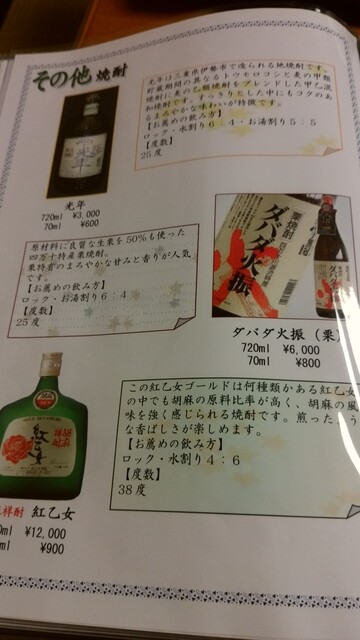 その他 焼酎
光年は三重県伊勢市で造られる地焼酎です。
貯蔵期間の異なるトウモロコシと麦の甲類
焼酎に麦の乙類焼酎をブレンドした甲乙混
和焼酎です。すっきりとした中にもコクのあ
るまろやかな味わいが特徴です。
【お薦めの飲み方】
ロック・水割り6：4・お湯割り5：5
【度数】
25度
光年
720ml ¥3,000
70ml ¥600
原材料に良質な生栗を50%も使った
四万十特産栗焼酎。
栗特有のまろやかな甘みと香りが人気
です。
【お薦めの飲み方】
ロック・お湯割り6：4
【度数】
25度
栗焼酎
ダバダ火振
ダバダ火振（栗）
720ml ¥6,000
70ml ¥800
この紅乙女ゴールドは何種類かある紅乙女
の中でも胡麻の原料比率が高く、胡麻の風
味を強く感じられる焼酎です。煎ったよう
な香ばしさが楽しめます。
【お薦めの飲み方】
ロック・水割り4：6
【度数】
38度
胡麻
祥酎
紅乙女
祥酎 紅乙女
0ml ¥12,000
ml ¥900